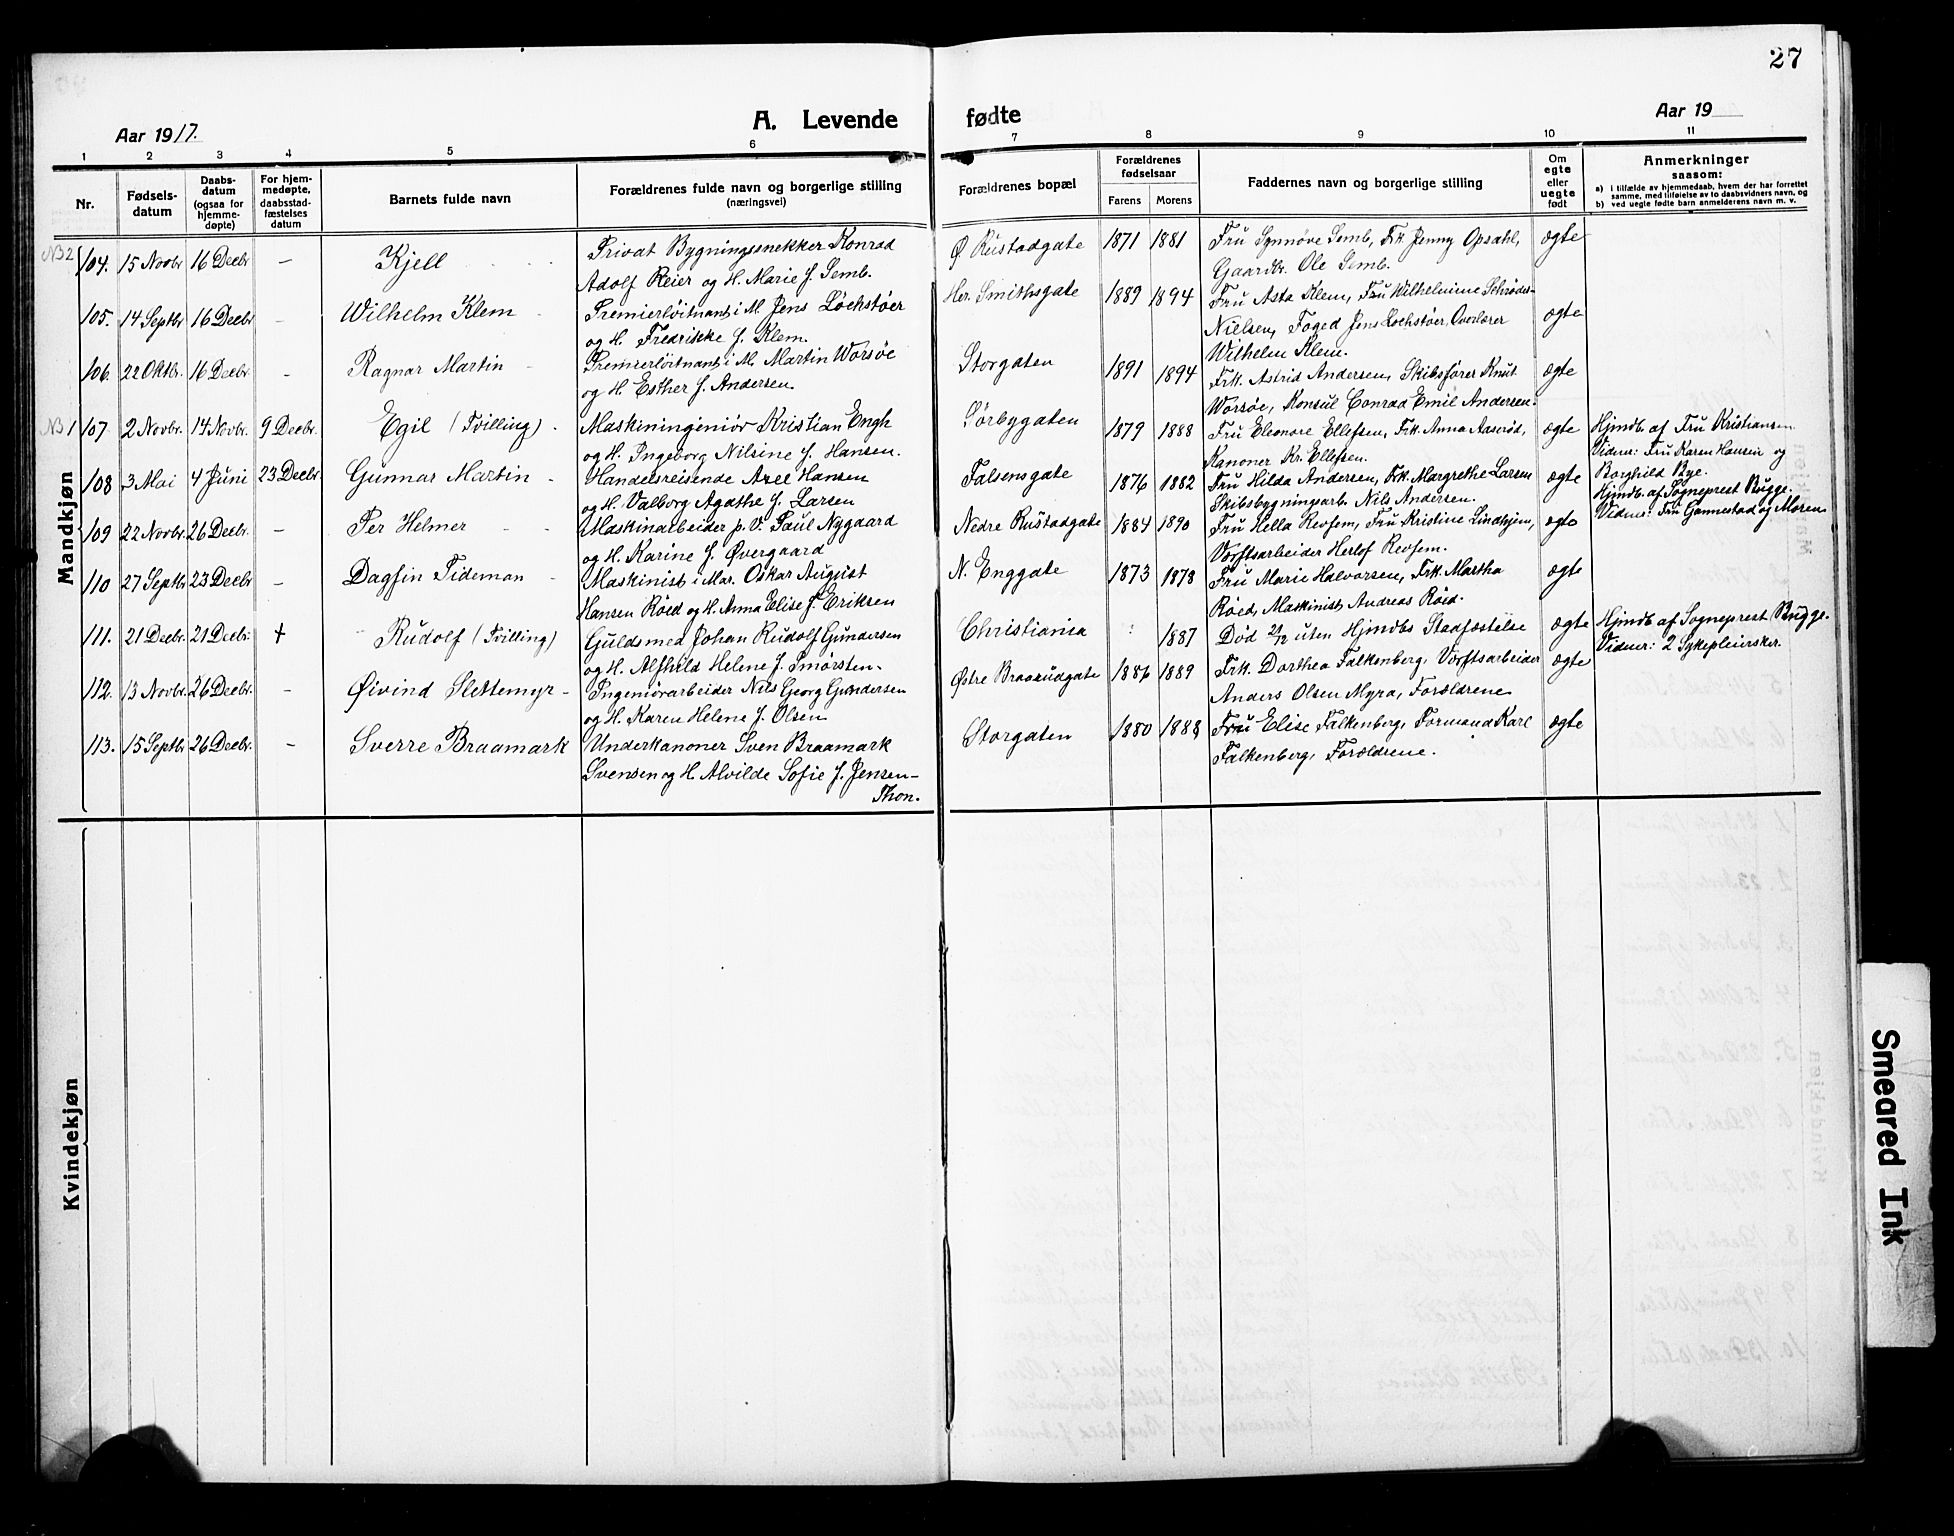 27
Aar 1917.
A. Levende fødte
Aar 19
1 2 3 4 5 6 7 8 9 10 11
Nr.
Fødsels-
datum
Daabs-
datum
(ogsaa for
hjemme-
døpte)
For hjem-
medøpte,
daabsstad-
fæstelses
datum
Barnets fulde navn
Forældrenes fulde navn og borgerlige stilling
(næringsvei)
Forældrenes bopæl
Forældrenes
fødselsaar
Farens Morens
Faddernes navn og borgerlige stilling
Om
egte
eller
uegte
født
Anmerkninger
saasom:
a) i tilfælde av hjemmedaab, hvem der har forrettet
samme, med tilføielse av to daabsvidners navn, og
b) ved uegte fødte barn anmelderens navn m. v.
Mandkjøn
NB 2 104. 15 Novbr. 16 Decbr. – Kjell Privat Bygningssnekker Konrad Ø. Rustadgate 1871 1881 Fru Synnøve Semb, Frk. Jenny Opsahl, ægte
Adolf Reier og H. Marie f. Semb. Gaardbr. Ole Semb.
105. 14 Septbr. 16 Decbr. Wilhelm Klem Premierløitnant i M. Jens Lochstøer Her. Smithsgate 1889 1894 Fru Asta Klem, Fru Wilhelmine Schrøder- ægte
og H. Fredrikke f. Klem. Nielsen, Foged Jens Lochstøer, Overlærer
Wilhelm Klem.
106. 22 Oktbr. 16 Decbr. – Ragnar Martin Premierløitnant i M. Martin Worsøe Storgaten 1891 1894 Frk. Astrid Andersen, Skibsfører Knut ægte
og H. Esther f. Andersen. Worsøe, Konsul Conrad Emil Andersen.
NB 1 107 2 Novbr. 14 Novbr. 9 Decbr. Egil (Tvilling) Maskiningeniør Kristian Engh Sørbygaten 1879 1888 Fru Eleonore Ellefsen, Frk. Anna Aaserød, ægte Hjmdb. af Fru Kristiansen
og H. Ingeborg Nilsine f. Hansen. Kanoner Kr. Ellefsen. Vidner: Fru Karen Hansen og
Borghild Bye.
108 3 Mai 4 Juni 23 Decbr. Gunnar Martin Handelsreisende Axel Hansen Falsensgate 1876 1882 Fru Hilda Andersen, Frk. Margrethe Larsen ægte Hjmdb. af Sogneprest Bugge.
og H. Valborg Agathe f. Larsen Skibsbygningsarb. Nils Andersen. Vidner: Fru Gannestad og Moren
109 22 Novbr. 26 Decbr. – Per Helmer Maskinarbeider p. V. Paul Nygaard Nedre Rustadgate 1884 1890 Fru Hella Revsem, Fru Kristine Lindhjem, ægte
og H. Karine f. Øvergaard Værftsarbeider Herlof Revsem.
110 27 Septbr. 23 Decbr. – Dagfin Tideman Maskinist i Mar. Oskar August N. Enggate 1873 1878 Fru Marie Halvorsen, Frk. Martha ægte
Hansen Røed og H. Anna Elise f. Eriksen Røed, Maskinist Andreas Røed.
111. 21 Decbr. 21 Decbr. + Rudolf (Tvilling) Guldsmed Johan Rudolf Gundersen Christiania 1887 Død 21/12 uten Hjmdbs Stadfæstelse ægte Hjmdb af Sogneprest Bugge.
og H. Alfhild Helene f. Smørsten. Vidner: 2 Sykepleiersker.
112. 13 Novbr. 26 Decbr. – Øivind Slettemyr Ingeniørarbeider Nils Georg Gundersen Østre Braarudgate 1886 1889 Frk. Dorthea Falkenberg, Værftsarbeider ægte
og H. Karen Helene f. Olsen Anders Olsen Myra, Forældrene
113. 15 Septbr. 26 Decbr. – Sverre Braamark Underkanoner Sven Braamark Storgaten 1880 1888 Fru Elise Falkenberg, Formand Karl ægte
Svensen og H. Alvilde Sofie f. Jensen- Falkenberg, Forældrene.
Thon.
Kvindekjøn
Smeared Ink